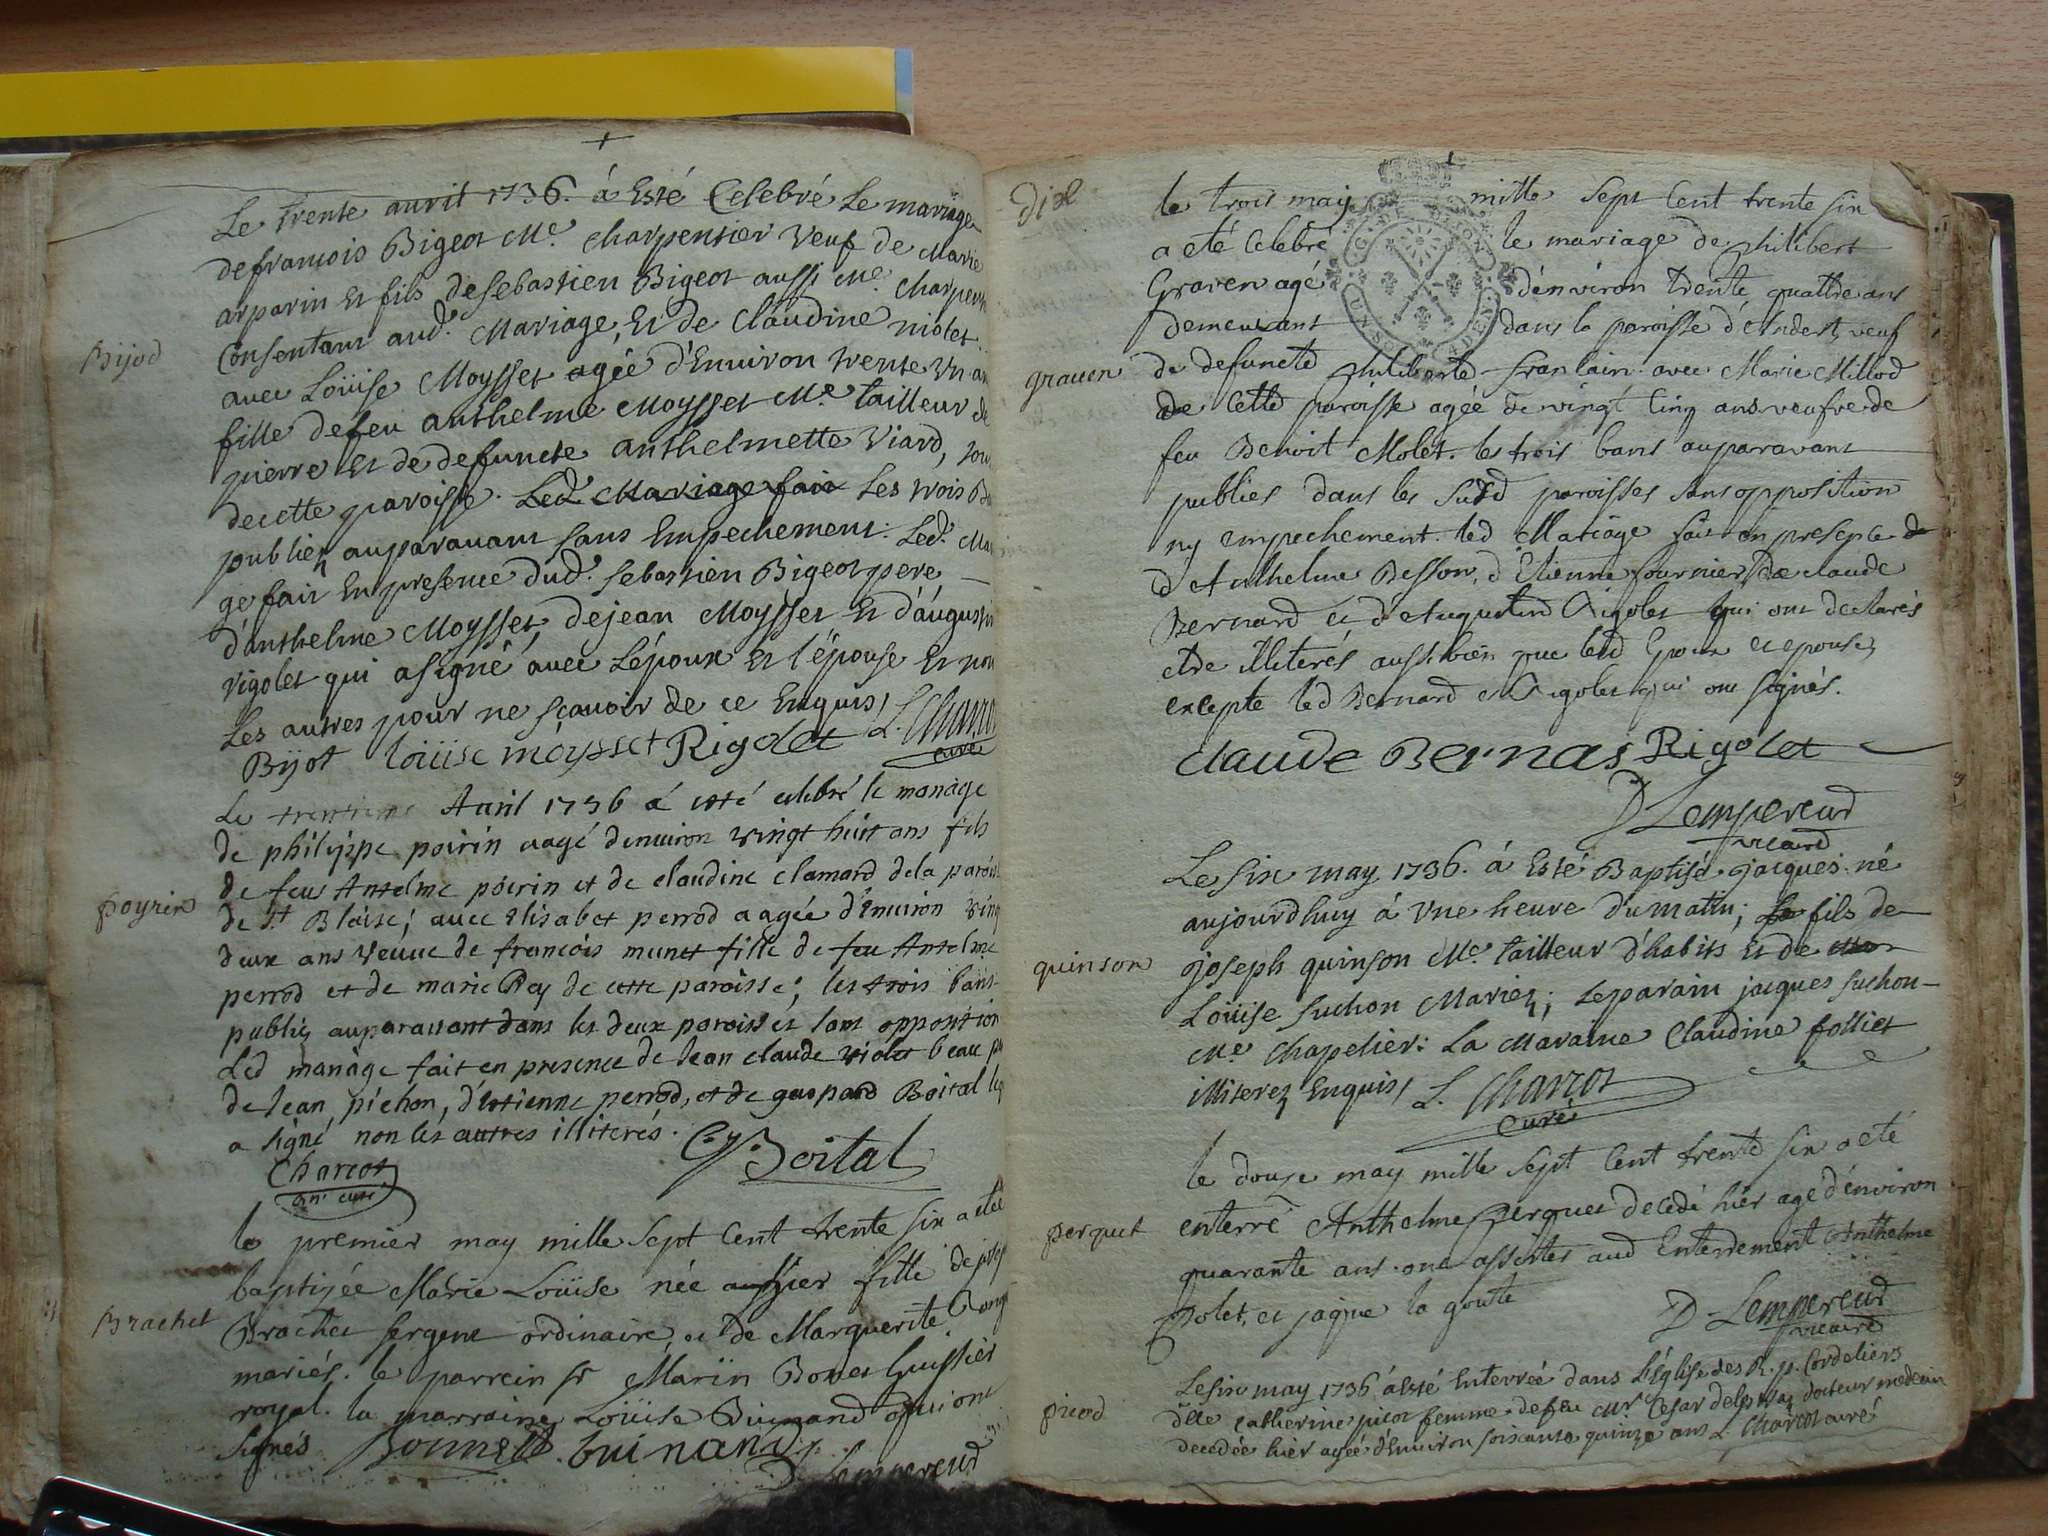 Le trente avril 1736. à Esté Celebré le mariage
de francois Bigeot Me. charpentier veuf de Marie
arparin Et fils de Sebastien Bigeot aussi Me. charpen
Consentant aud. Mariage, Et de Claudine niolet
Bijod
avec Loüise Moysset agée d'Environ trente un an
fille de feu anthelme Moysset Me tailleur de
pierre Et de defuncte anthelmette Viard, tous
de cette paroisse. Led. Mariage fait Les trois Ba
publiez auparavant sans Empechement. Led. Ma
ge fait En presence dud. Sebastien Bigeot pere
d'anthelme Moysset, de jean Moysset Et d'augustin
rigolet qui a signé avec L'époux Et l'épouse Et non
Les autres pour ne sçavoir de ce Enquis, L. Charcot
curé
Bijot loüise moysset Rigolet
Le trentieme Avril 1736 à esté celebré le mariage
de philippe poirin aagé denviron vingt huit ans fils
de feu Antelme poirin et de claudine clamard de la parois
poyrin
de St. Blaise; avec Elisabet perrod aagée d'Environ ving
deux ans veuve de francois munet fille de feu Antelme
perrod et de marie Rey de cette paroisse; les trois bans
publiez auparavant dans les deux paroisses sans opposition
Led mariage fait en presence de Jean claude violet beau p
de Jean pichon, d'etienne perrod, et de gaspard Boital leq
a signé non les autres illiterés. G. Boital
Charcot
an. curé
le premier may mille sept cent trente six a eté
baptisée Marie Loüise née hier fille de josep
Brachet
Brachet sergent ordinaire, et de Marguerite
mariés. le parrein sr Marin Bonet huissier
royal. la marraine Loüise Buinand qui ont
signés Bonnet buinand
D Lempereud
diel
le trois may mille sept cent trente six
a eté celebré le mariage de philibert
Graven agé d'environ trente quattre ans
demeurant dans la paroisse d'Andert, veuf
graven
de defuncte philiberte franlain avec Marie Millod
de cette paroisse agée de vingt cinq ans veufve de
feu Benoit Molet. les trois bans auparavant
publies dans les susd paroisses sans opposition
ny empechement. led Mariage fait en presence de
d'Anthelme Besson, d'Etienne fournier, de claude
Bernard et d'Augustin Rigolet qui ont declarés
etre illiterés aussi bien que led Epoux et epouse,
excepte led Bernard et Rigolet qui ont signés.
claude Bernas Rigolet
D Lempereud
vicaire
Le six may 1736. à Esté Baptisé jacques né
aujourdhuy à Vne heure du matin; fils de
quinson
joseph quinson Me. tailleur d'habits Et de
Loüise suchon Mariez; Le parain jacques suchon
Me. chapelier: La Maraine Claudine folliet
illiterez Enquis, L. Charcot
curé
le douze may mille sept cent trente six a eté
perquet
enterré Anthelme perquet decedé hier agé d'environ
quarante ans. ont assistes aud Enterrement Anthelme
polet, et jaque la goute
D Lempereud
vicaire
picod
Le six may 1736 à Esté Enterrée dans L'Eglise des R. p. Cordeliers
dlle catherine picot femme de feu mr Cesar docteur medecin
decedée hier agée d'Environ soixante quinze ans L. Charcot curé